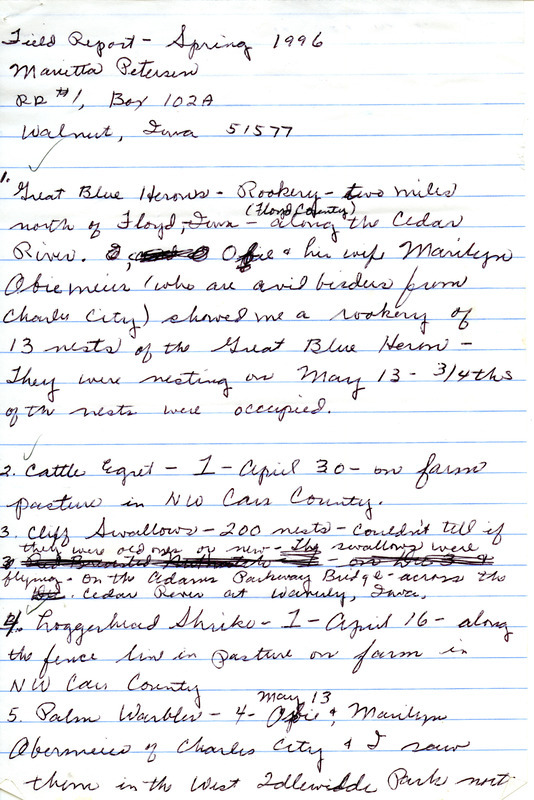 Field Report - Spring 1996
Marietta Petersen
RR #1, Box 102A
Walnut, Iowa 51577
1. Great Blue Herons - Rookery - two miles
(Floyd County)
north of Floyd, Iowa - along the Cedar
River. Obie & his wife Marilyn
Obiemeier (who are avid birders from
Charles City) showed me a rookery of
13 nests of the Great Blue Heron -
They were nesting on May 13 - 3/4ths
of the nests were occupied.
2. Cattle Egret - 1 - April 30 - on farm
pasture in NW Cass County.
3. Cliff Swallows - 200 nests - Couldn't tell if
they were old ones or new - The swallows were
flying - on the Adams Parkway Bridge - across the
Cedar River at Waverly, Iowa.
4. Loggerhead Shrike - 1 - April 16 - along
the fence line in pasture on farm in
NW Cass County
May 13
5. Palm Warbler - 4 - Obie & Marilyn
of Charles City & I saw
them in the West Idlewilde Park